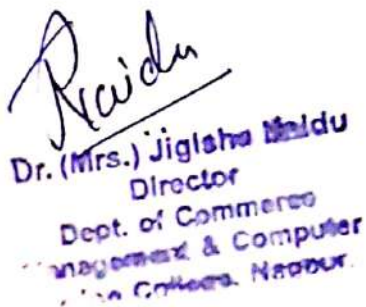 Naidu
Dr. (Mrs.) Jigisha Naidu
Director
Dept. of Commerce
Management & Computer
College, Nagpur.